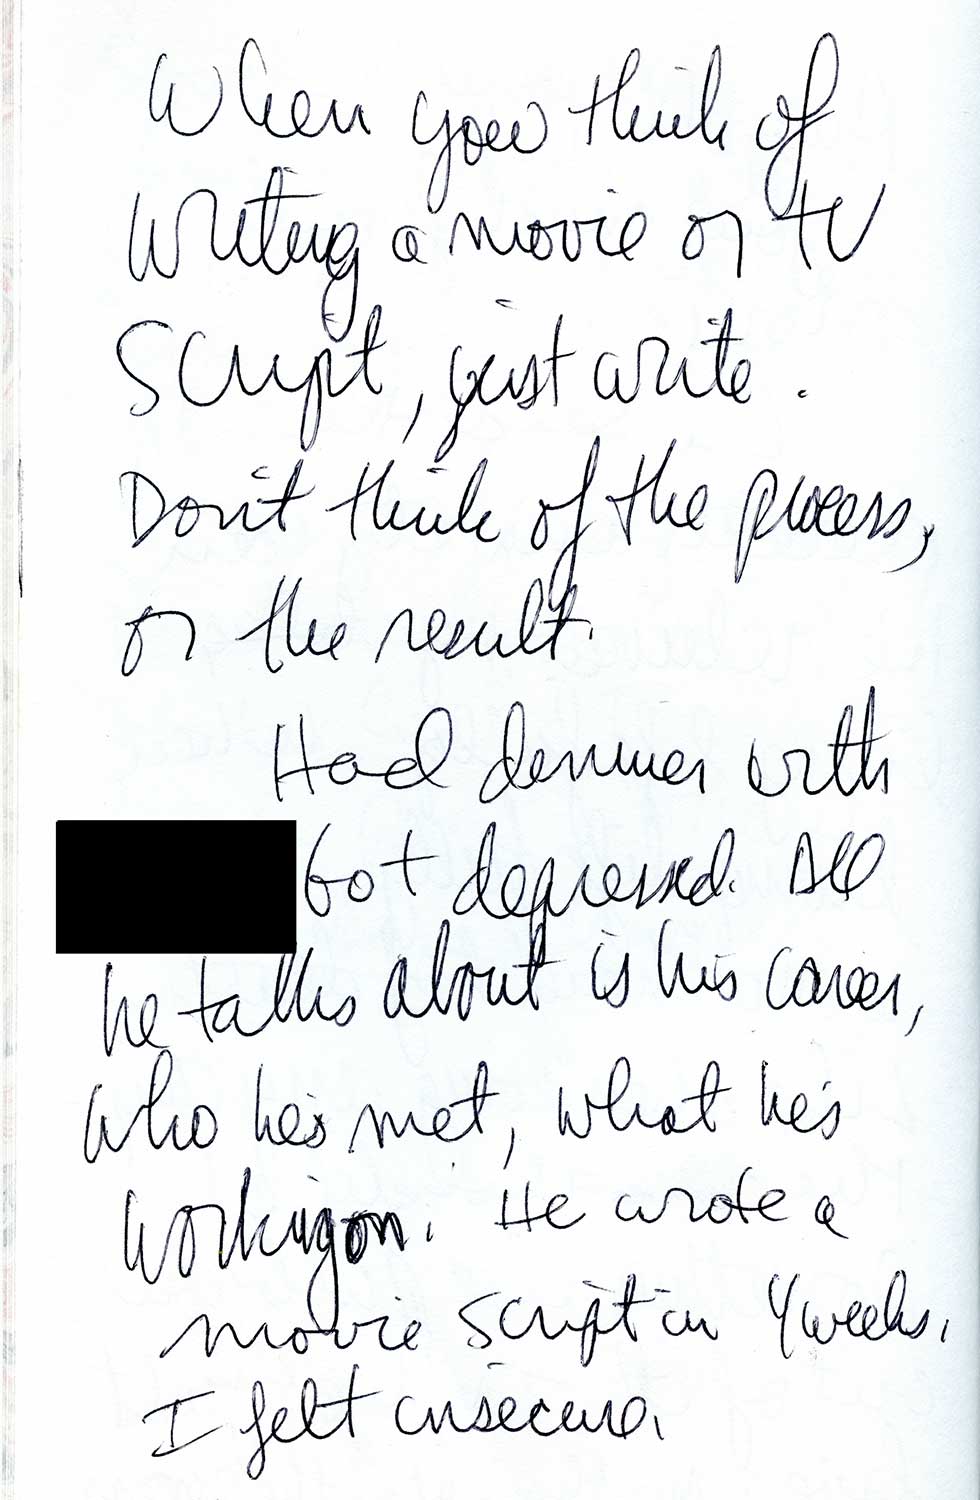 When you think of
writing a movie or TV
script, just write.
Don't think of the process,
or the result.
Had dinner with
Got depressed. All
he talks about is his career,
who he's met, what he's
working on. He wrote a
movie script in 4 weeks.
I felt insecure.